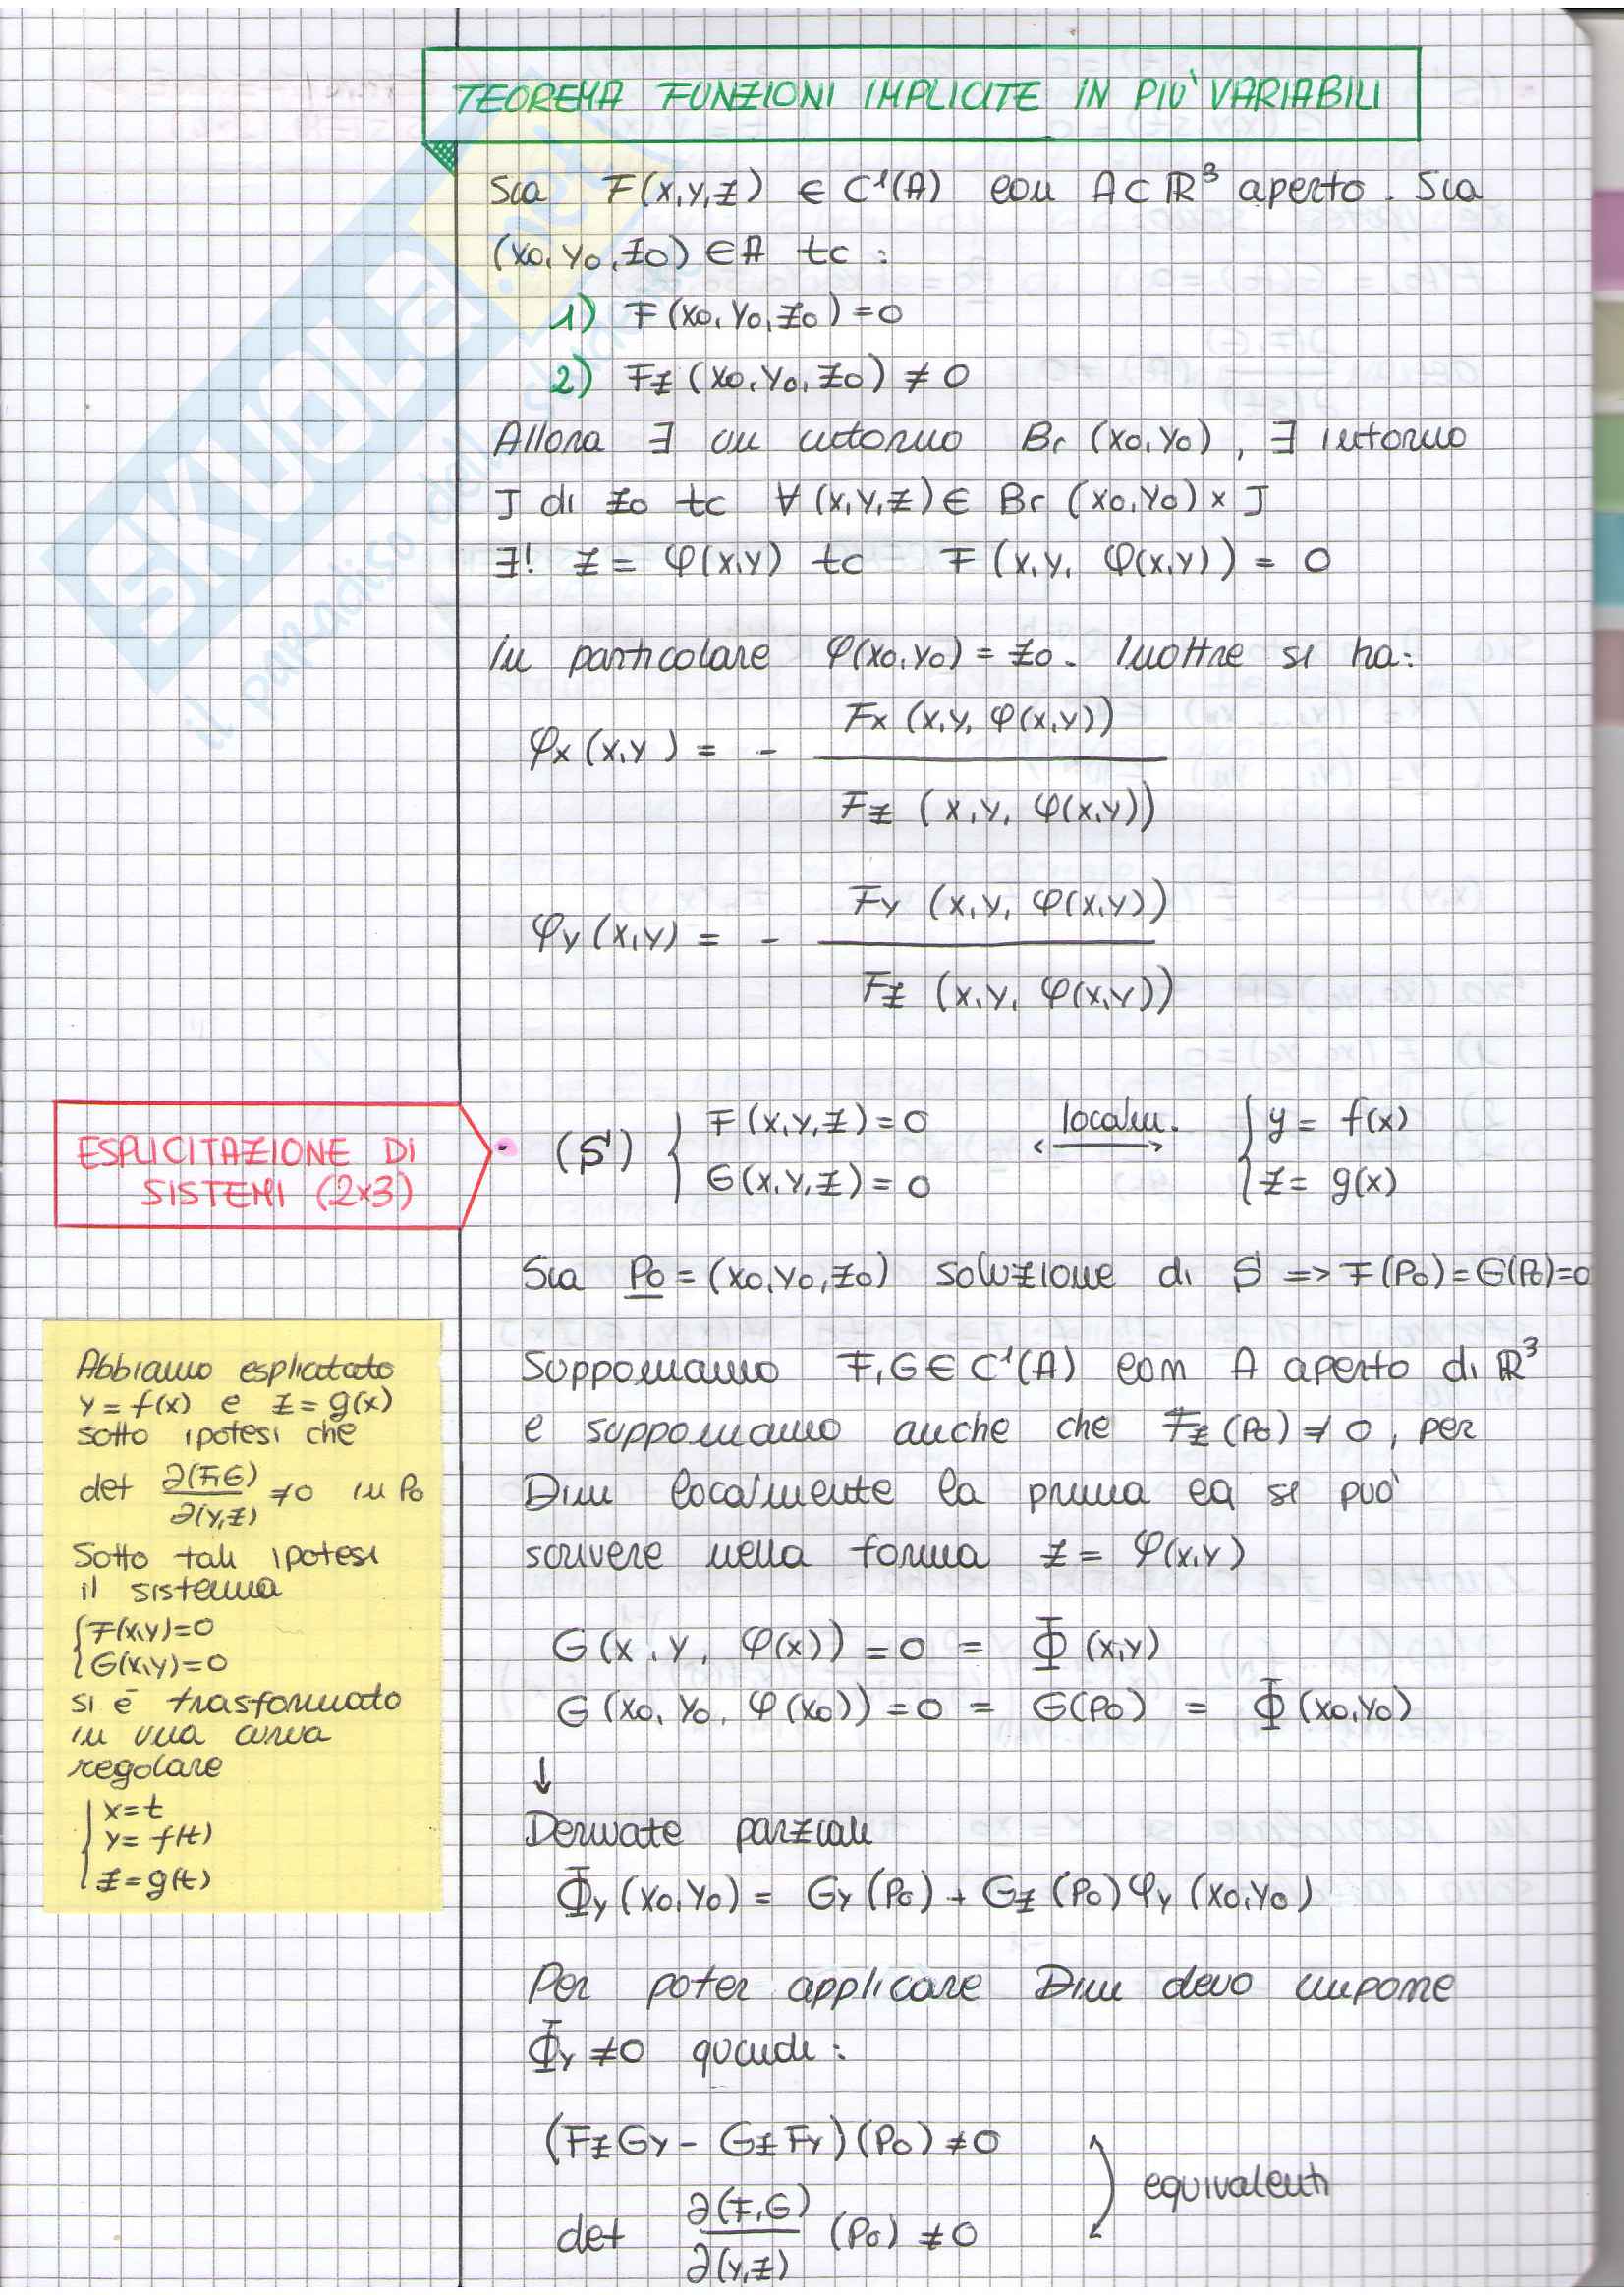 TEOREMA FUNZIONI IMPLICITE IN PIU' VARIABILI
Sia F(x,y,z) ∈ C¹(A) con A⊂ℝ³ aperto. Sia
(x0,y0,z0) ∈ A tc :
1) F(x0,y0,z0)=0
2) Fz (x0,y0,z0) ≠ 0
Allora ∃ un intorno Br (x0,y0), ∃ intorno
J di z0 tc ∀ (x,y,z) ∈ Br (x0,y0) × J
∃! z = φ(x,y) tc F (x,y, φ(x,y)) = 0
In particolare φ(x0,y0) = z0. Inoltre si ha:
φx (x,y) = - Fx (x,y, φ(x,y)) / Fz (x,y, φ(x,y))
φy (x,y) = - Fy (x,y, φ(x,y)) / Fz (x,y, φ(x,y))
ESPLICITAZIONE DI
SISTEMI (2x3)
(S) { F(x,y,z)=0 localm. ↔ { y = f(x)
G(x,y,z)=0 z = g(x)
Sia P0 = (x0,y0,z0) soluzione di S => F(P0)=G(P0)=0
Supponiamo F,G ∈ C¹(A) con A aperto di ℝ³
e supponiamo anche che Fz (P0) ≠ 0, per
Dini localmente la prima eq si può
scrivere nella forma z = φ(x,y)
G(x,y, φ(x)) = 0 = Φ (x,y)
G (x0,y0, φ(x0)) = 0 = G(P0) = Φ (x0,y0)
↓
Derivate parziali
Φy (x0,y0) = Gy (P0) + Gz (P0) φy (x0,y0)
Per poter applicare Dini devo imporre
Φy ≠0 quindi :
(FzGy - GzFy) (P0) ≠0
det ∂(F,G) / ∂(y,z) (P0) ≠0
equivalenti
Abbiamo esplicitato
y = f(x) e z = g(x)
sotto ipotesi che
det ∂(F,G) / ∂(y,z) ≠0 in P0
Sotto tali ipotesi
il sistema
{ F(x,y)=0
G(x,y)=0
si è trasformato
in una curva
regolare
{ x=t
y= f(t)
z=g(t)
SKUOLA.net
il paradiso dello studente